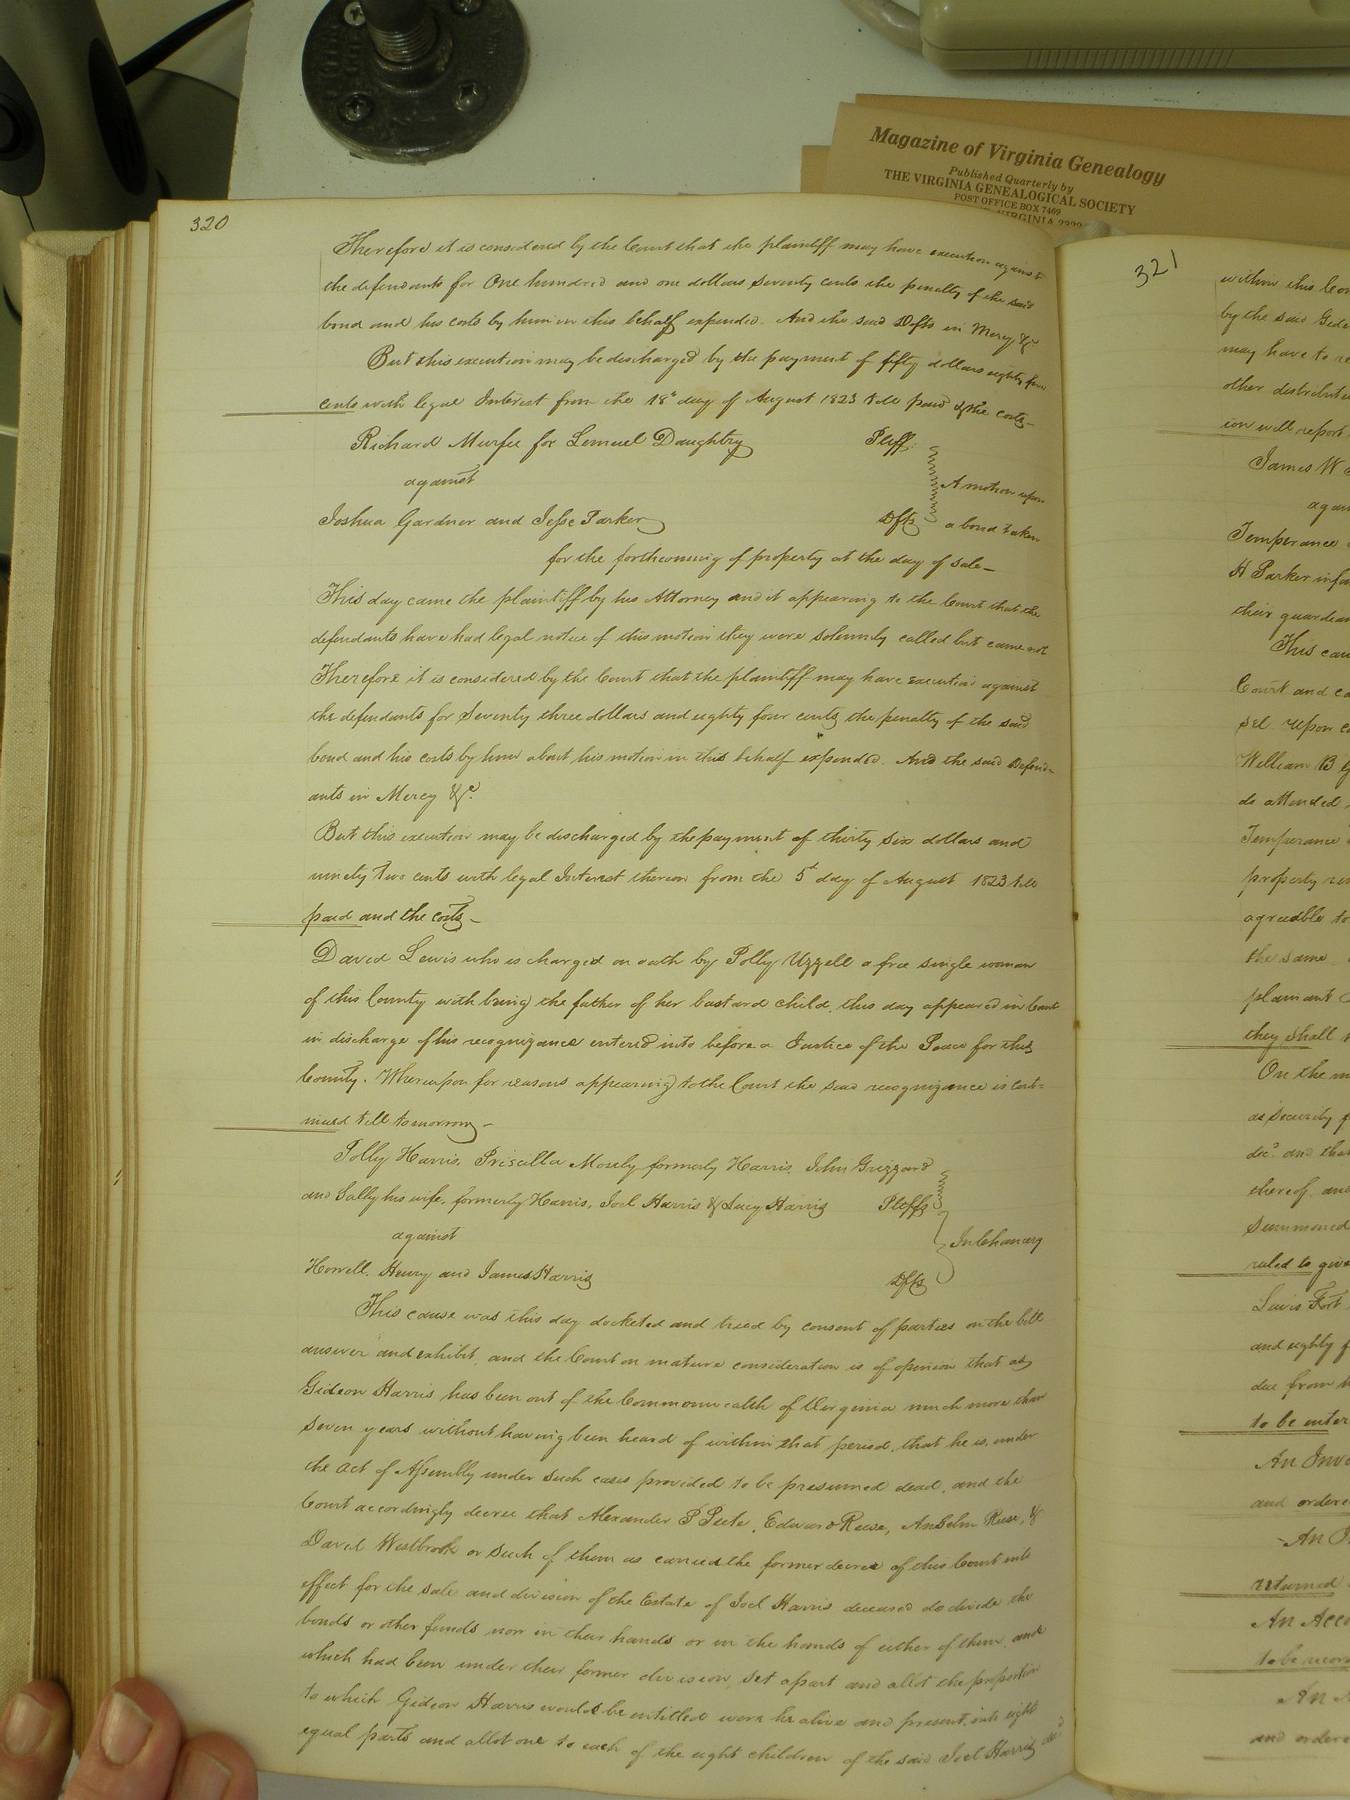 Magazine of Virginia Genealogy
Published Quarterly by
THE VIRGINIA GENEALOGICAL SOCIETY
POST OFFICE BOX 7469
VIRGINIA
320
Therefore it is considered by the Court that the plaintiff may have execution against
the defendants for One hundred and one dollars seventy cents the penalty of the said
bond and his costs by him in this behalf expended. And the said Dfts in Mercy &c
But this execution may be discharged by the payment of fifty dollars eighty four
cents with legal Interest from the 18th day of August 1823 till paid & the costs—
Richard Murfee for Lemuel Daughtry Pltff.
against
A motion upon
Joshua Gardner and Jesse Parker Dfts a bond taken
for the forthcoming of property at the day of sale—
This day came the plaintiff by his Attorney and it appearing to the Court that the
defendants have had legal notice of this motion they were solemnly called but came not
Therefore it is considered by the Court that the plaintiff may have execution against
the defendants for Seventy three dollars and eighty four cents the penalty of the said
bond and his costs by him about his motion in this behalf expended. And the said Defend-
ants in Mercy &c.
But this execution may be discharged by the payment of thirty six dollars and
ninety two cents with legal Interest thereon from the 5th day of August 1823 till
paid and the costs—
David Lewis who is charged on oath by Polly Uzzell a free single woman
of this County with being the father of her bastard child, this day appeared in Court
in discharge of his recognizance entered into before a Justice of the Peace for this
County. Whereupon for reasons appearing to the Court the said recognizance is cont-
inued till tomorrow—
Polly Harris, Priscilla Mosely formerly Harris, John Grizzard
and Sally his wife, formerly Harris, Joel Harris & Lucy Harris Pltffs
against
In Chancery
Howell, Henry and James Harris Dfts
This cause was this day docketed and tried by consent of parties on the bill
answer and exhibit, and the Court on mature consideration is of opinion that as
Gideon Harris has been out of the Commonwealth of Virginia much more than
seven years without having been heard of within that period, that he is, under
the act of Assembly under such cases provided to be presumed dead, and the
Court accordingly decree that Alexander P Peete, Edward Reese, Anselm Reese, &
David Westbrook or such of them as carried the former decree of this Court into
effect for the sale and division of the Estate of Joel Harris deceased do divide the
bonds or other funds now in their hands or in the hands of either of them, and
which had been under their former division, set apart and allot the proportion
to which Gideon Harris would be entitled were he alive and present, into eight
equal parts and allot one to each of the eight children of the said Joel Harris decd
321
within this
by the said
may have to
other
ion will report
James W
Temperance
H Parker
their guardian
This
Court and
sel upon
William B
do attended
Temperance
property
agreeable to
the same
plainants
they shall
On the
as security
decd. and that
thereof, and
Summoned
ruled to give
Lewis Fort
and eighty
due from
to be
An
and
An
returned
An
to be
An
and